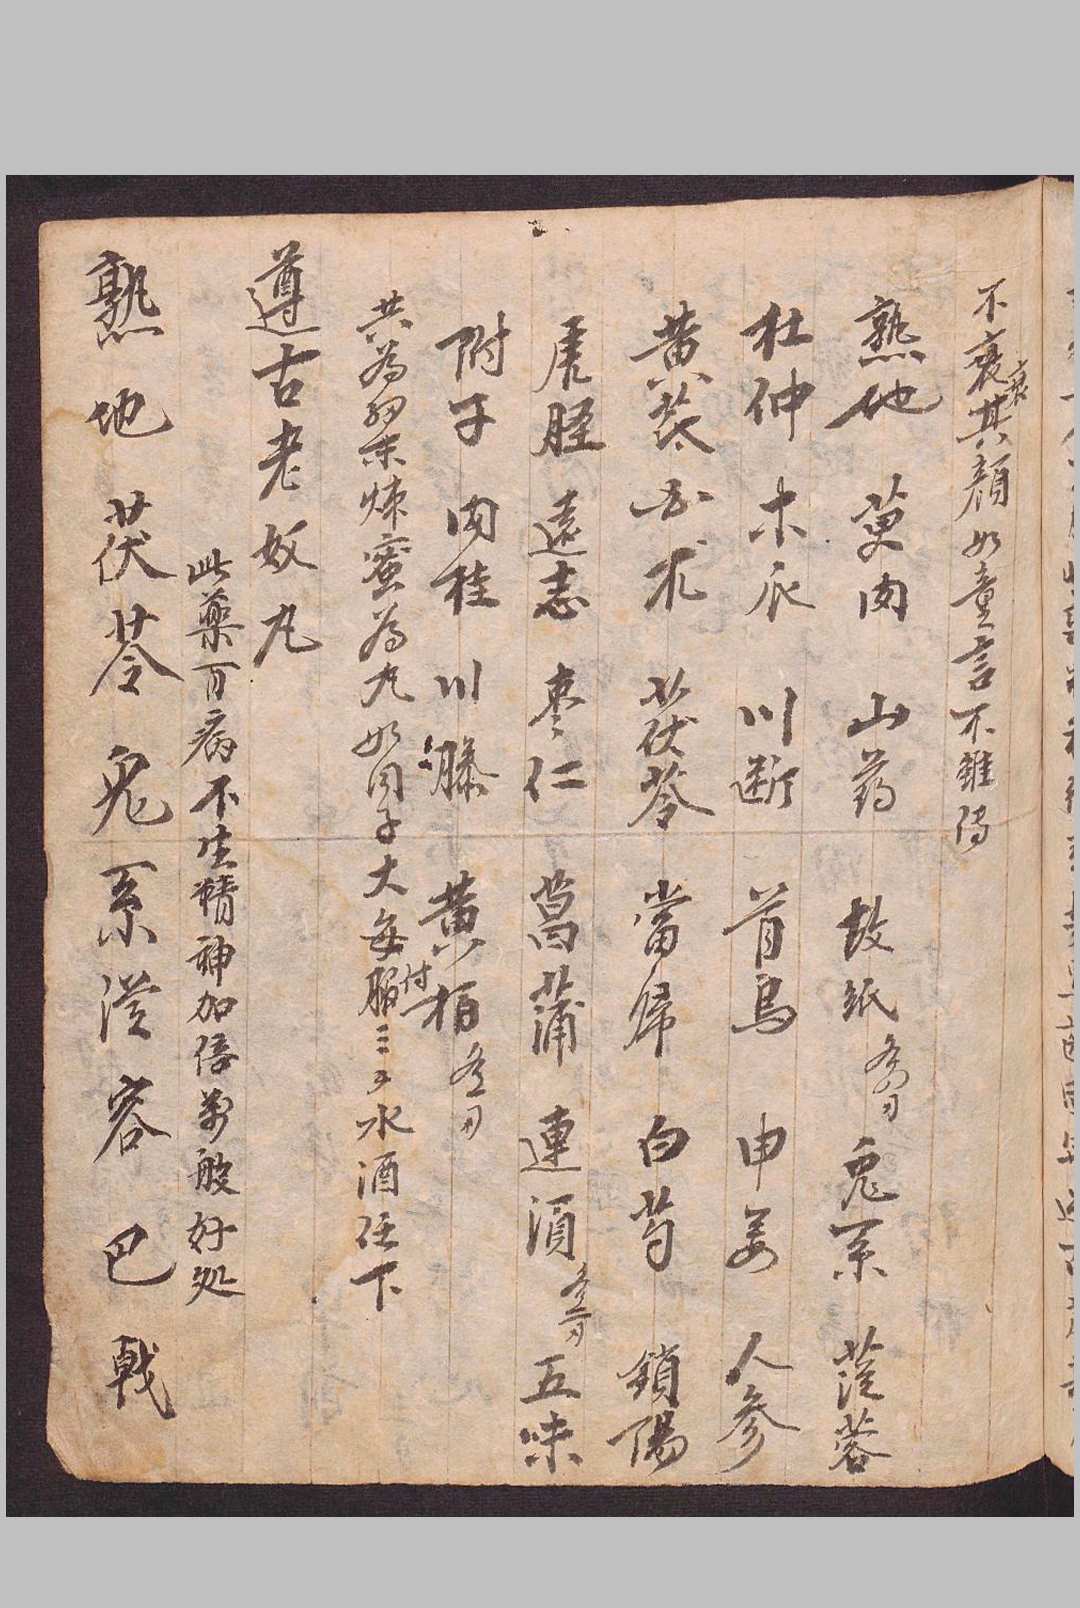 不衰其顏如童言不雖傳
衰
熟地 萸肉 山药 故紙 兎系 蓯蓉
杜仲 木瓜 川断 首烏 申姜 人參
黄芪 白朮 茯苓 當歸 白芍 鎖陽
虎脛 遠志 枣仁 菖蒲 連湏 五味
附子 肉桂 川膝 黄栢
共為細末煉蜜為丸如同子大每服三子水酒任下
付
遵古老奴丸
此藥百病不生精神加倍萬般好処
熟地茯苓兎系蓯容巴戟